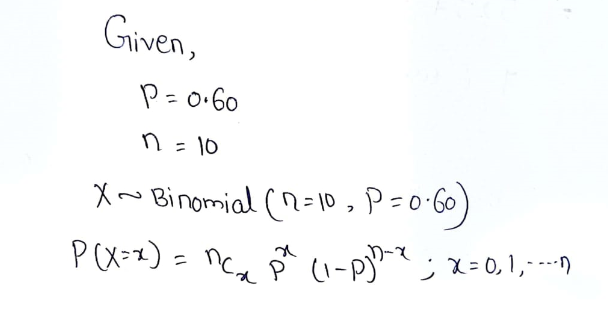 Given,
P = 0.60
n = 10
X ~ Binomial (n=10, P=0.60)
P(X=x) = ⁿCₓ pˣ (1-p)ⁿ⁻ˣ ; x=0,1,----n